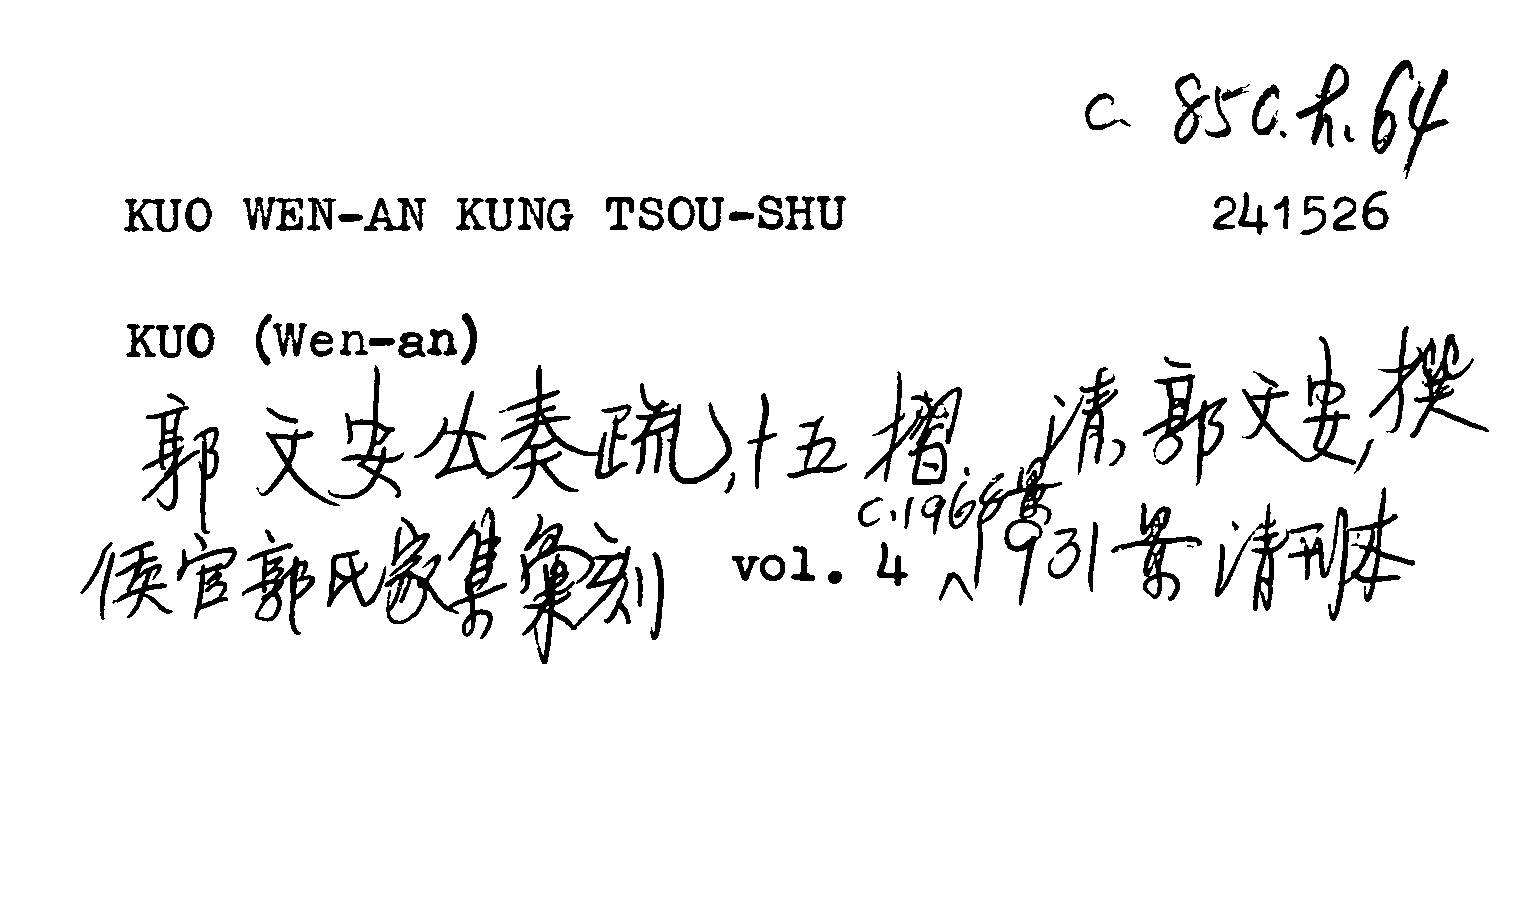 c. 850.h.64
KUO WEN-AN KUNG TSOU-SHU 241526
KUO (Wen-an)
郭文安公奏疏,十五摺. 清,郭文安,撰
c.1968景
侯官郭氏家集彙刻 vol. 4 1931景清刊本